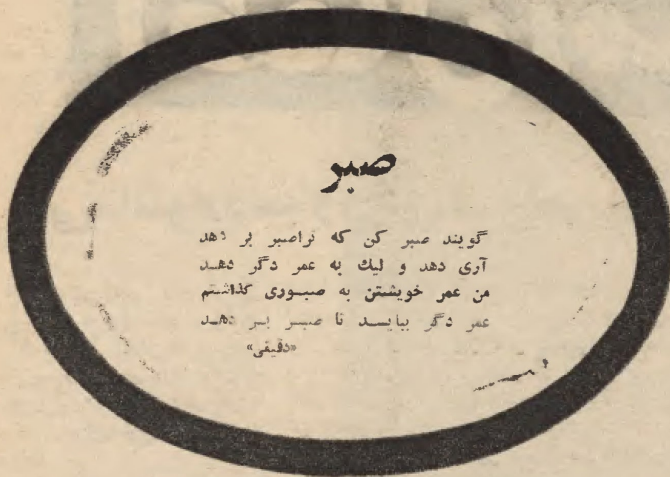 صبر
گویند صبر کن که ترا صبر بر دهد
آری دهد و لیک به عمر دگر دهد
من عمر خویشتن به صبوری گذاشتم
عمر دگر ببایـد تا صبـر بـر دهـد
«دقیقی»